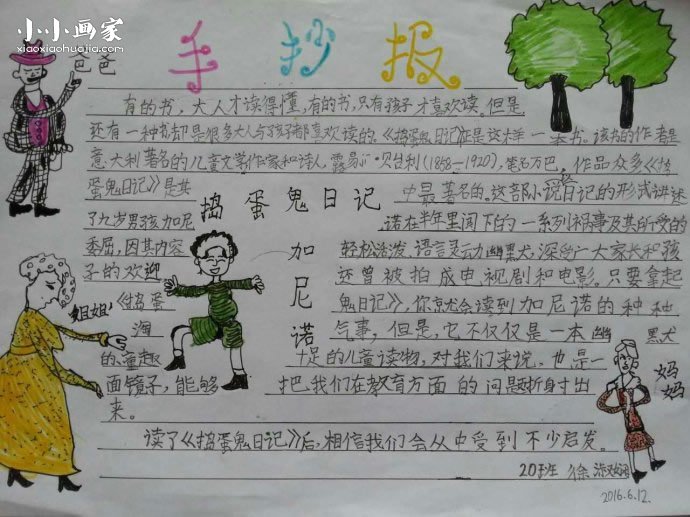 小小画家
xiaoxiaohuajia.com
手抄报
爸爸
有的书，大人才读得懂，有的书，只有孩子才喜欢读。但是
还有一种书却是很多大人与孩子都喜欢读的。《捣蛋鬼日记》正是这样一本书。该书的作者是
意大利著名的儿童文学作家和诗人，露易·贝台利(1858—1920)，笔名万巴，作品众多《捣
蛋鬼日记》是其 中最著名的。这部小说以日记的形式讲述
捣蛋鬼日记
了九岁男孩加尼 诺在半年里闯下的一系列祸事及其所受的
委屈，因其内容 轻松活泼，语言灵动幽黑犬，深受广大家长和孩
子的欢迎 还曾被拍成电视剧和电影。只要拿起
加尼诺
姐姐
《捣蛋 鬼日记》，你就会读到加尼诺的种种
淘 气事，但是，它不仅仅是一本幽黑犬
的、童趣 十足的儿童读物，对我们来说，也是一
面镜子，能够 把我们在教育方面的问题折身寸出
来。
妈妈
读了《捣蛋鬼日记》后，相信我们会从中受到不少启发。
2016.6.12.